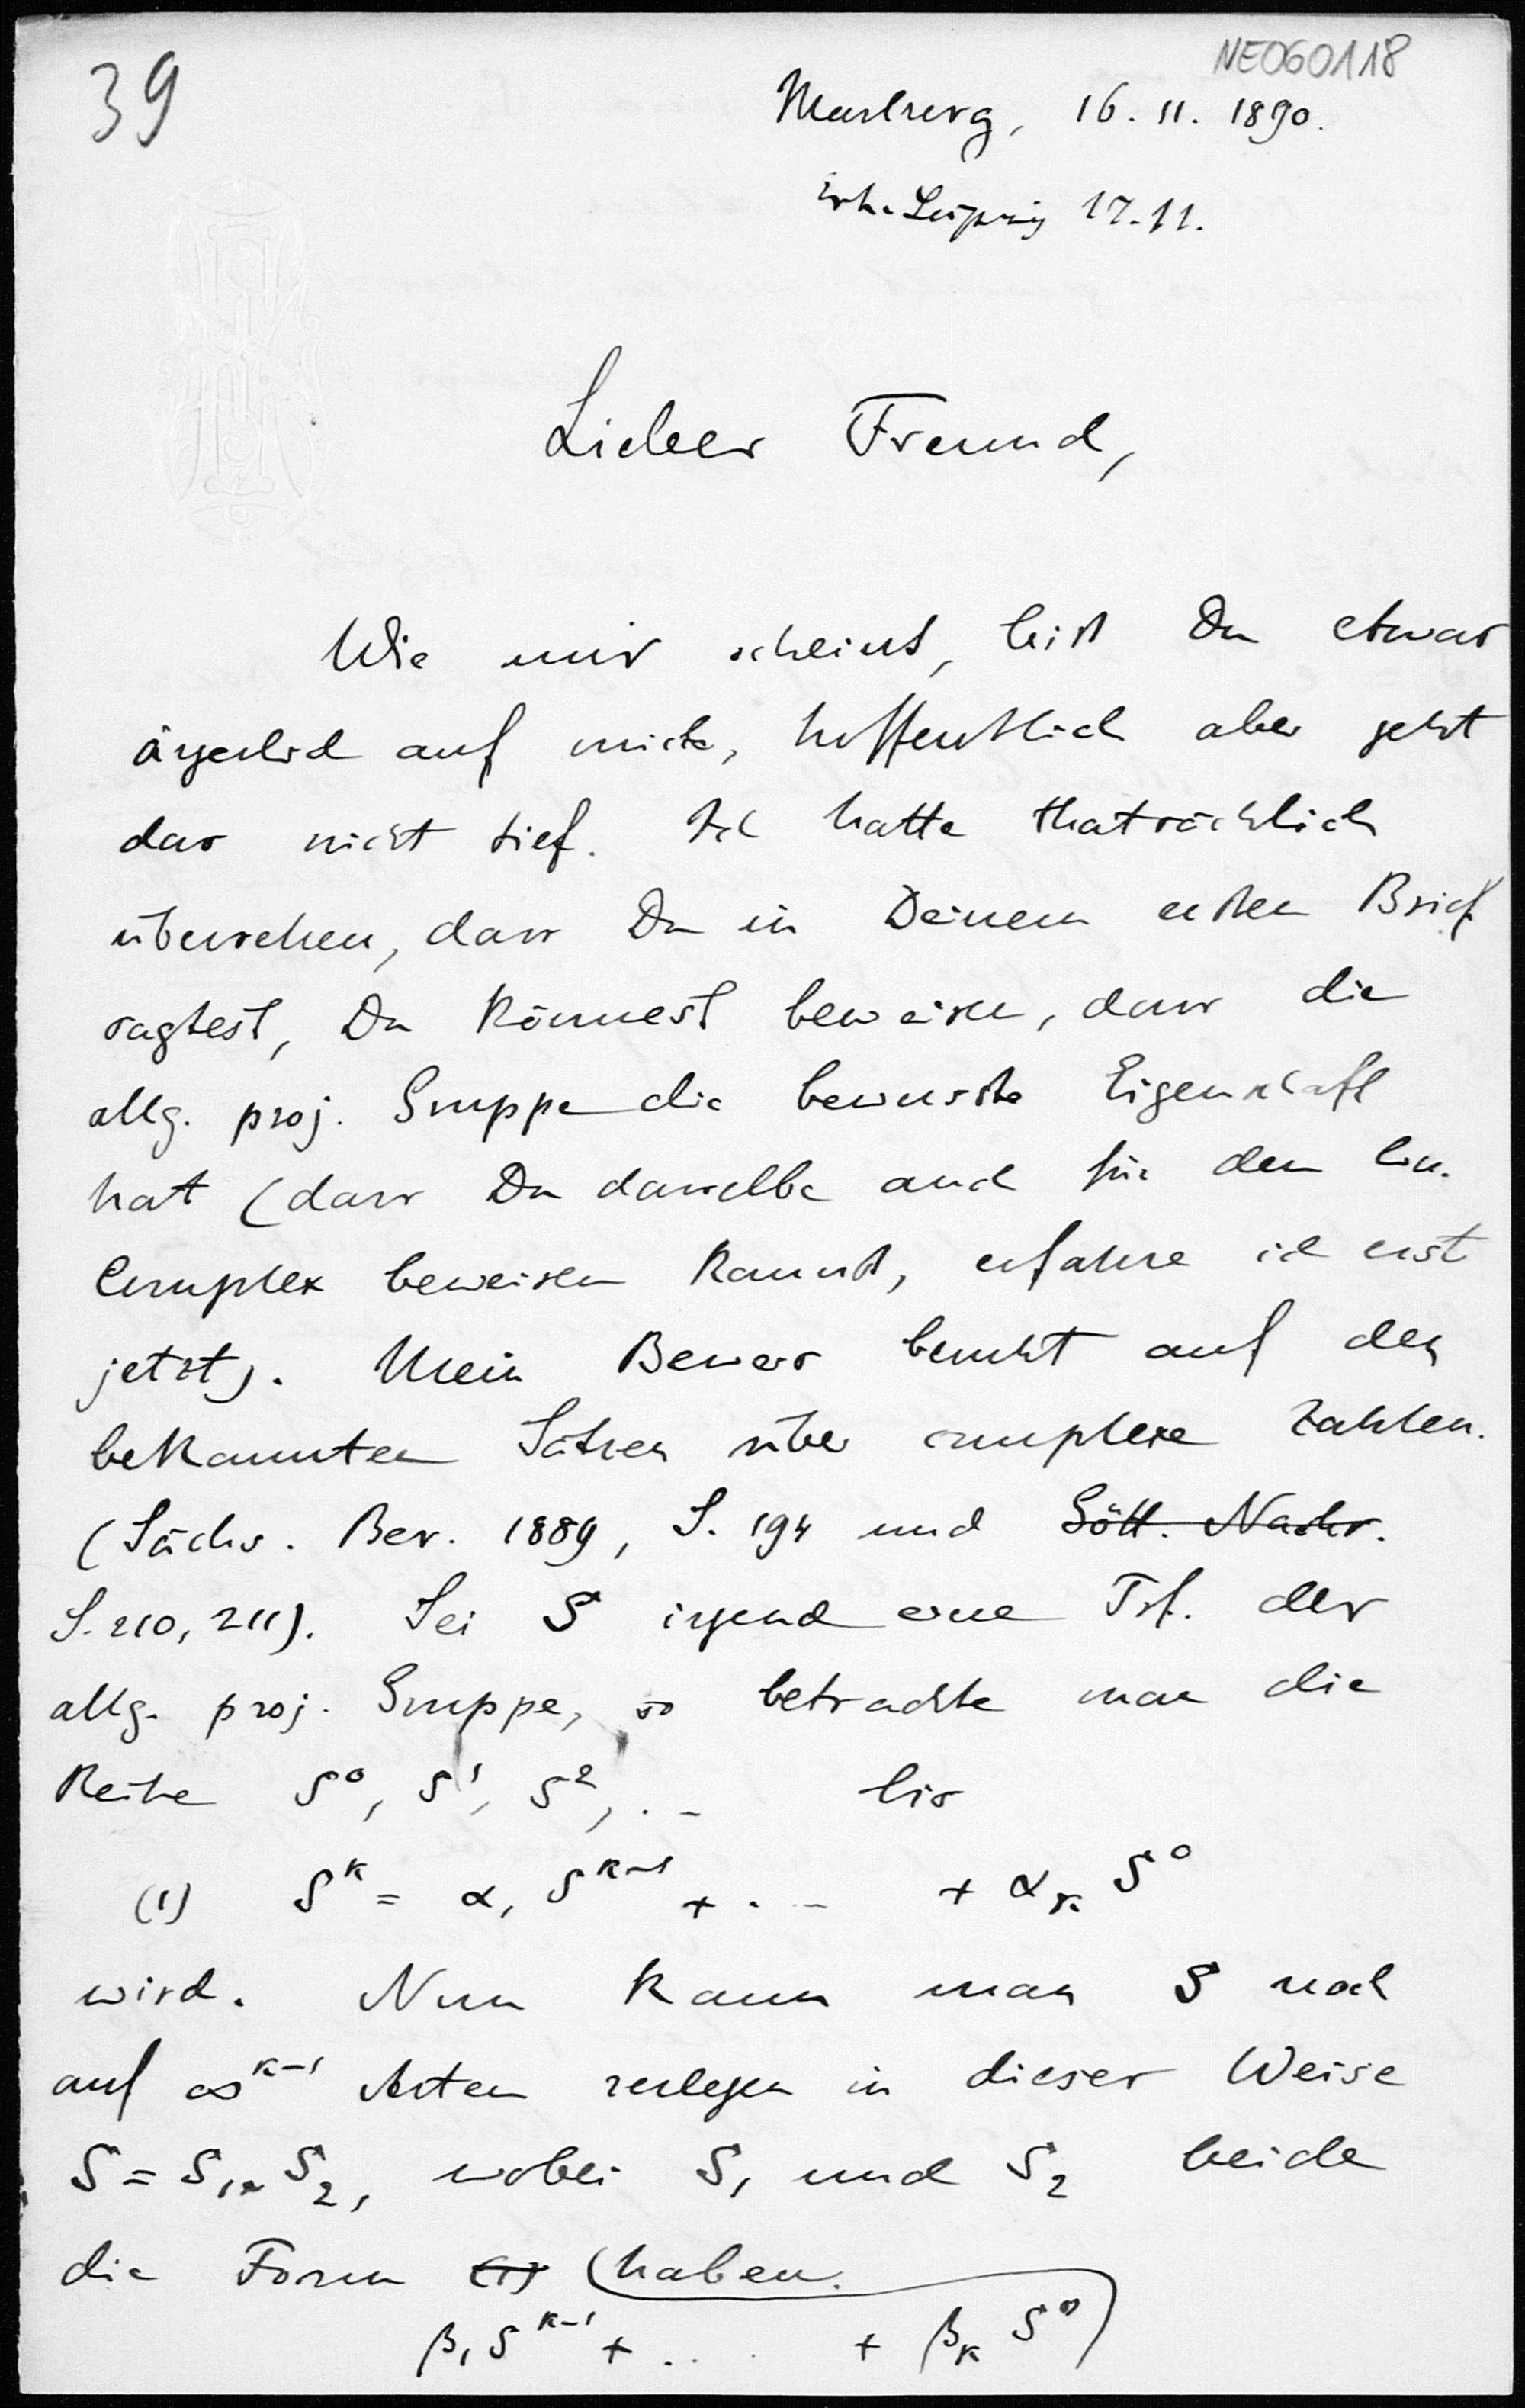 39
NE060118
Marburg, 16. 11. 1890.
Erh. Leipzig 17.11.
Lieber Freund,
Wie mir scheint, bist Du etwas
ärgerlich auf mich, hoffentlich aber geht
das nicht tief. Ich hatte thatsächlich
übersehen, dass Du in Deinem ersten Brief
sagtest, Du könnest beweisen, dass die
allg. proj. Gruppe die bewusste Eigenschaft
hat (dass Du dasselbe auch für den lin.
Complex beweisen kannst, erfahre ich erst
jetzt). Mein Beweis beruht auf den
bekannten Sätzen über complexe Zahlen.
(Sächs. Ber. 1889, S. 194 und Gött. Nachr.
S. 210, 211). Sei S irgend eine Trf. der
allg. proj. Gruppe, so betrachte man die
Reihe S⁰, S¹, S², . . bis
(1) Sᵏ = α₁ Sᵏ⁻¹ + . . + αₖ S⁰
wird. Nun kann man S noch
auf ∞ᵏ⁻¹ Arten zerlegen in dieser Weise
S = S₁ S₂, wobei S₁ und S₂ beide
die Form (1) (haben.
β₁ Sᵏ⁻¹ + . . . + βₖ S⁰)